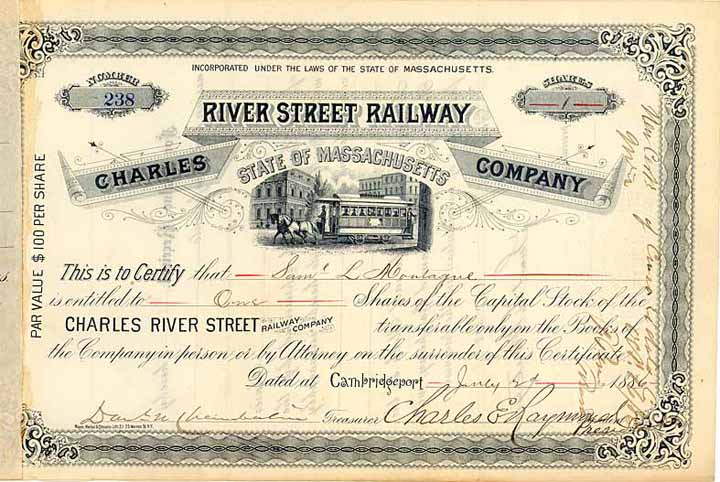 INCORPORATED UNDER THE LAWS OF THE STATE OF MASSACHUSETTS.
NUMBER
238
SHARES
1
RIVER STREET RAILWAY
CHARLES
COMPANY
STATE OF MASSACHUSETTS
PAR VALUE $100 PER SHARE
This is to Certify that Sam'l L Montague
is entitled to One Shares of the Capital Stock of the
CHARLES RIVER STREET RAILWAY COMPANY transferable only on the Books of
the Company in person, or by Attorney, on the surrender of this Certificate.
Dated at Cambridgeport July 2d 1886
Treasurer Charles E Raymond